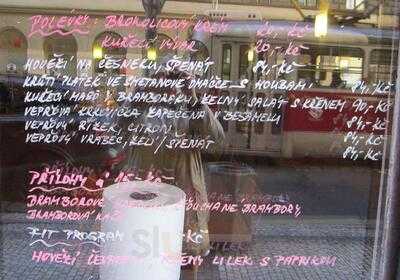 POLÉVKY: BROKOLICOVÝ KRÉM 20,-Kč
KUŘECÍ VÝVAR 20,-Kč
HOVĚZÍ NA ČESNEKU, ŠPENÁT 84,-Kč
KRŮTÍ PLÁTEK VE SMETANOVÉ OMÁČCE S HOUBAMI 84,-Kč
KUŘECÍ V BRAMBORÁKU, ZELNÝ SALÁT S KŘENEM 90,-Kč
VEPŘOVÁ KRKVIČKA ZAPEČENÁ V BEŠAMELU 84,-Kč
VEPŘOVÝ ŘÍZEK, CITRON 84,-Kč
VEPŘOVÝ VRABEC, ZELÍ/ŠPENÁT 84,-Kč
PŘÍLOHY Á 15,-Kč
BRAMBOROVÉ ŠŤOUCHANÉ BRAMBORY
BRAMBOROVÁ KAŠE
FIT PROGRAM -Kč
HOVĚZÍ LILEK S PAPRIKOU